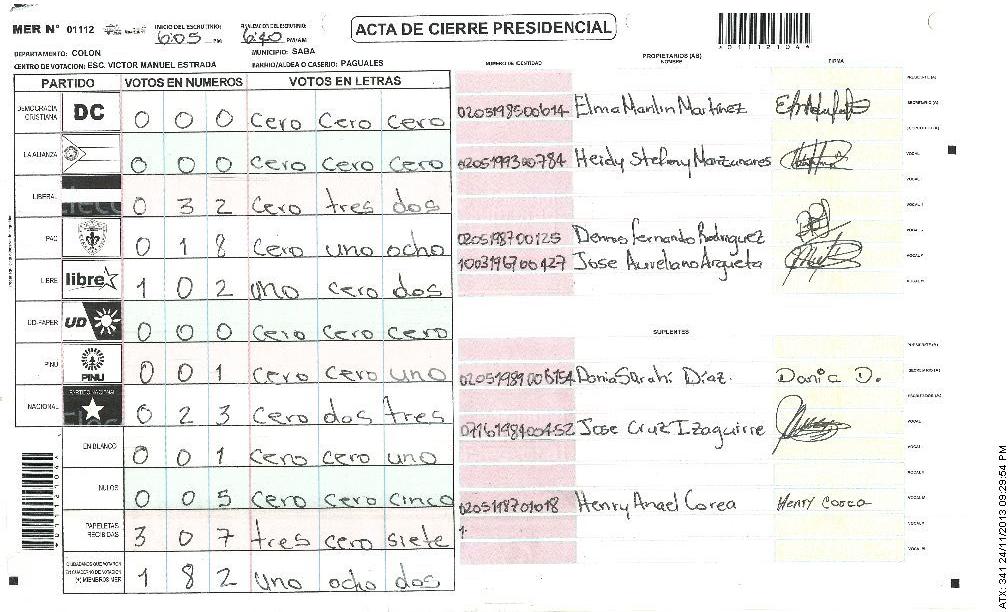 MER N° 01112 INICIO DEL ESCRUTINIO: 6:05 PM FINALIZACION DEL ESCRUTINIO: 6:40 PM/AM
ACTA DE CIERRE PRESIDENCIAL
DEPARTAMENTO: COLON MUNICIPIO: SABA
CENTRO DE VOTACION: ESC. VICTOR MANUEL ESTRADA BARRIO/ALDEA O CASERIO: PAGUALES
PARTIDO VOTOS EN NUMEROS VOTOS EN LETRAS
DEMOCRACIA CRISTIANA DC 0 0 0 cero cero cero
LA ALIANZA 0 0 0 cero cero cero
LIBERAL 0 3 2 cero tres dos
PAC 0 1 8 cero uno ocho
LIBRE libre 1 0 2 uno cero dos
UD-FAPER UD 0 0 0 cero cero cero
PINU PINU 0 0 1 cero cero uno
NACIONAL PARTIDO NACIONAL 0 2 3 cero dos tres
EN BLANCO 0 0 1 cero cero uno
NULOS 0 0 5 cero cero cinco
PAPELETAS RECIBIDAS 3 0 7 tres cero siete
CIUDADANOS QUE VOTARON EN CUADERNO DE VOTACION (+) MIEMBROS MER 1 8 2 uno ocho dos
NUMERO DE IDENTIDAD PROPIETARIOS (AS) NOMBRE FIRMA
0205198500614 Elma Marilin Martinez
0205199300784 Heidy Stefany Manzanares
0205198700125 Dennis Fernando Rodriguez
1003196700427 Jose Aureliano Argueta
SUPLENTES
Dania Sarahi Diaz. Dania D.
Jose Cruz Izaguirre
Henry Anael Corea Henry Corea
ATX: 341 24/11/2013 09:29:54 PM